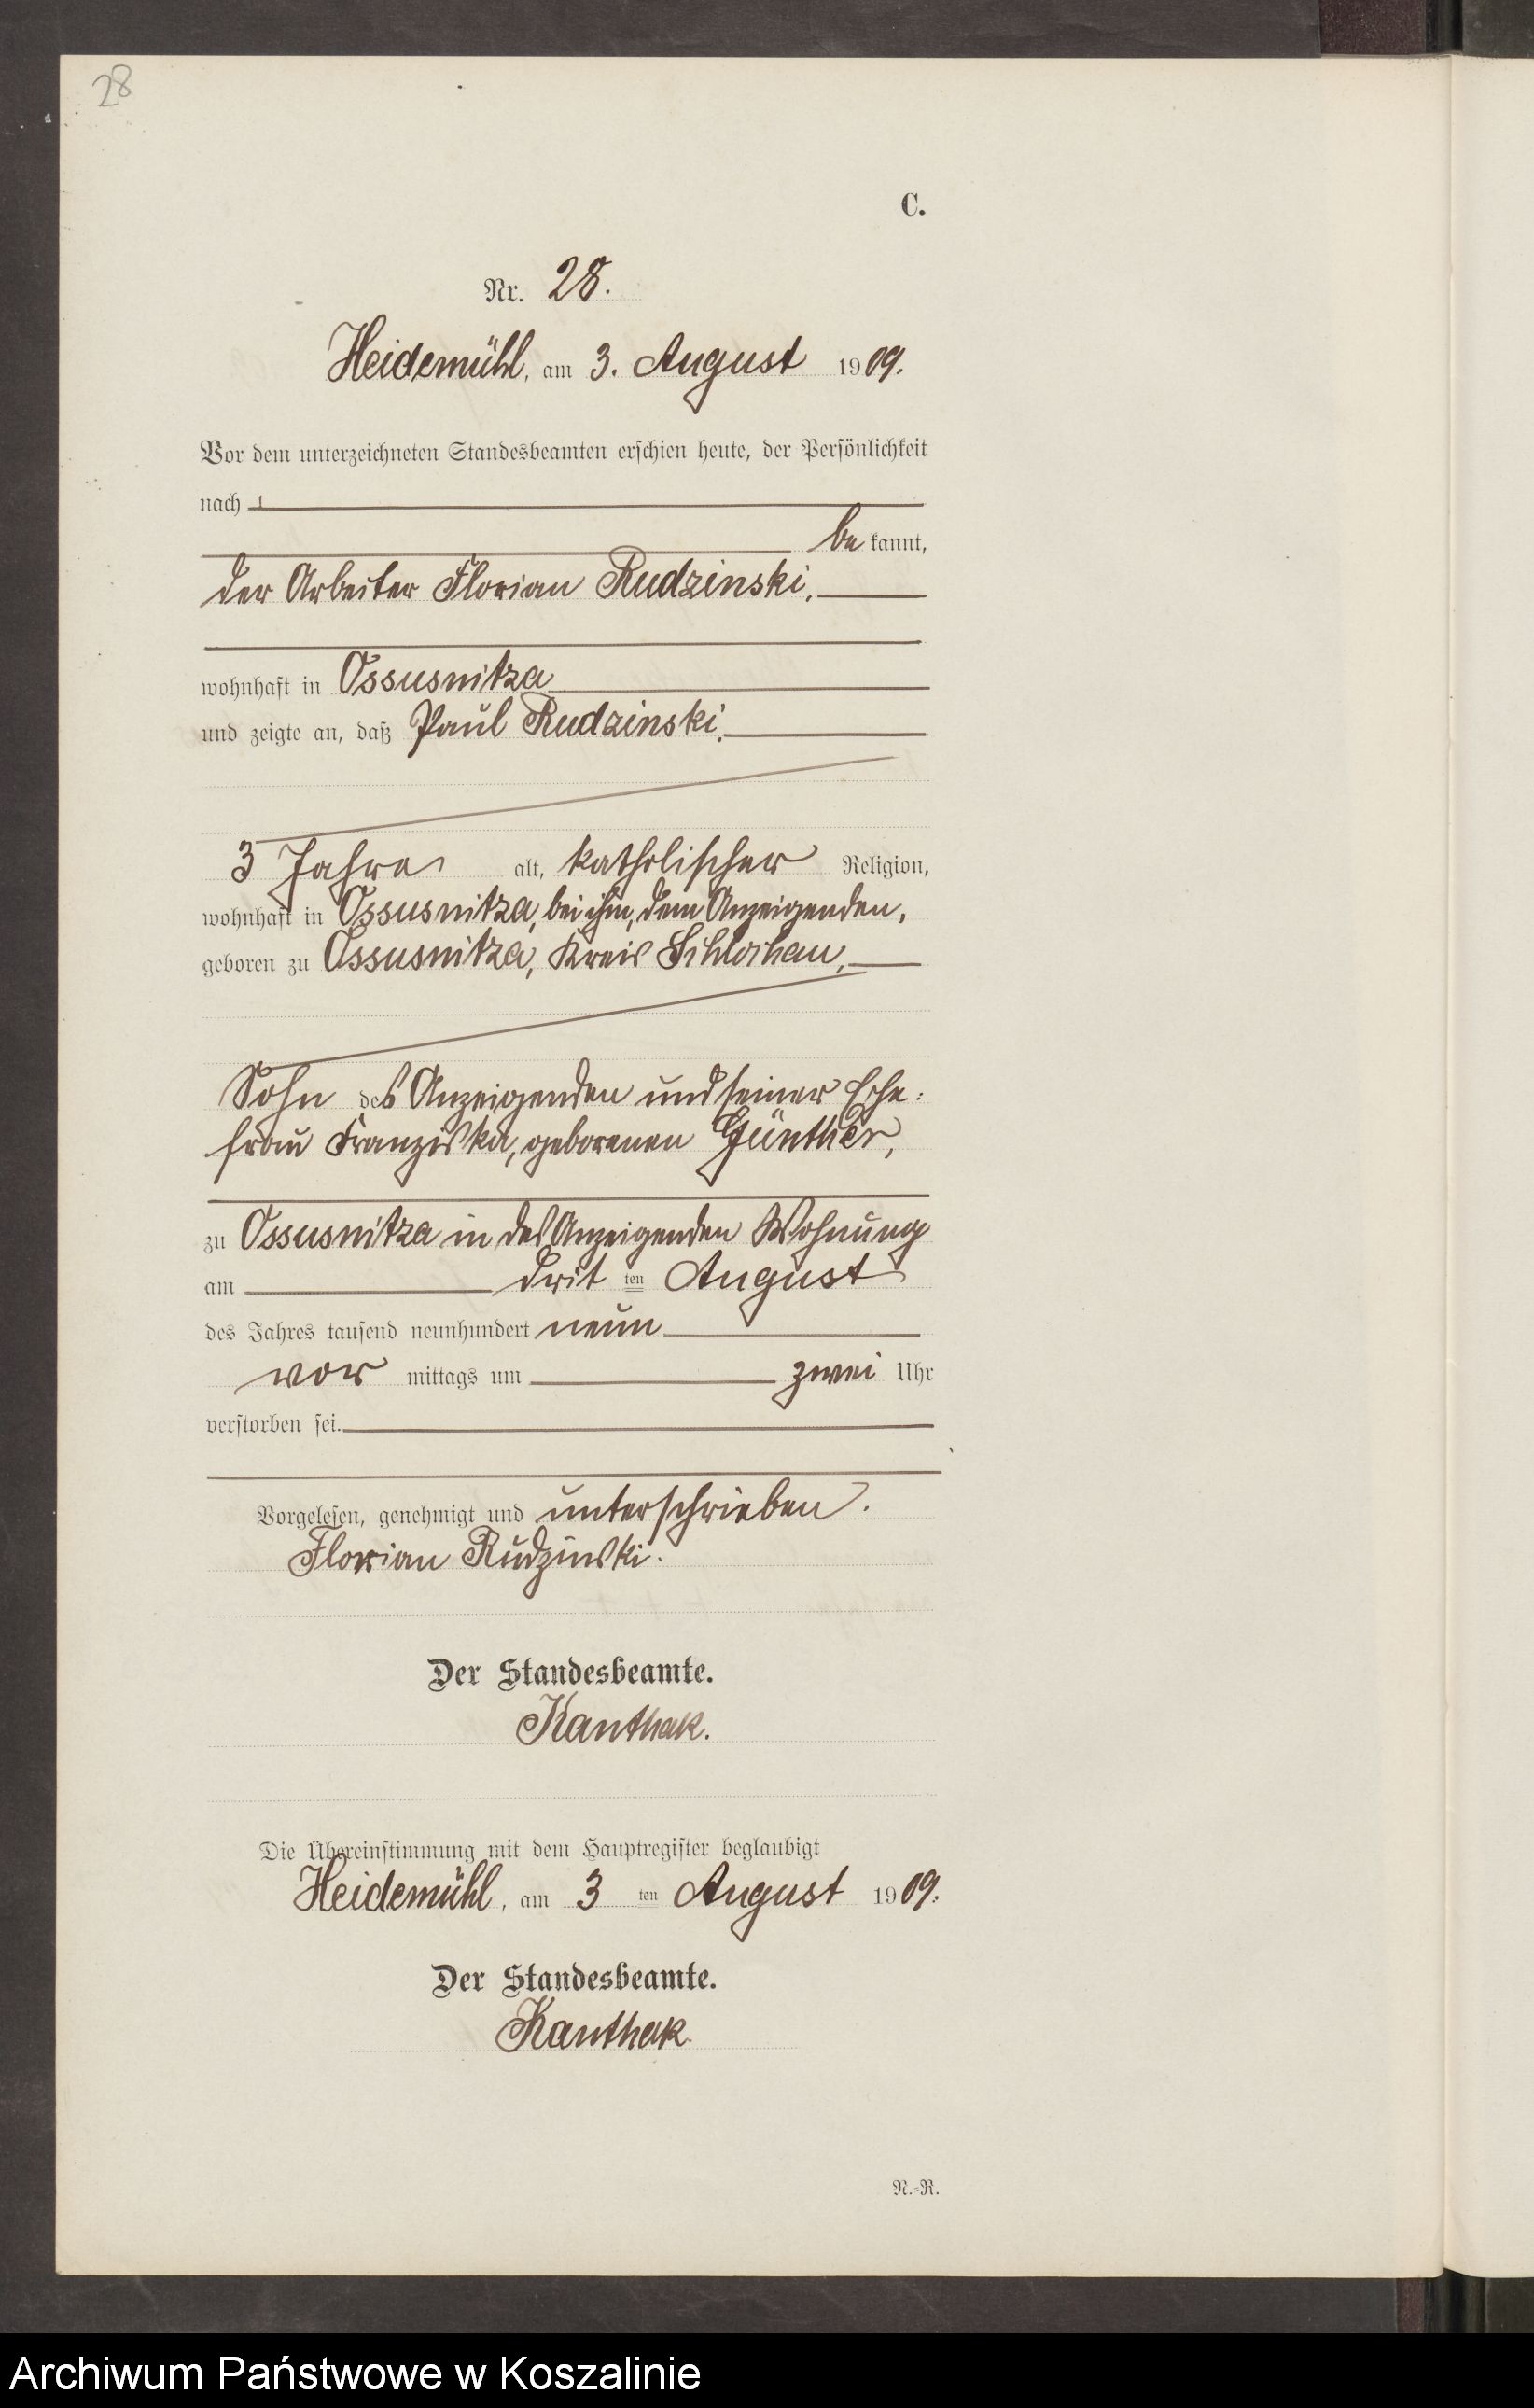 28
C.
Nr. 28.
Heidemühl, am 3. August 1909.
Vor dem unterzeichneten Standesbeamten erschien heute, der Persönlichkeit
nach
be kannt,
der Arbeiter Florian Rudzinski,
wohnhaft in Ossusnitza
und zeigte an, daß Paul Rudzinski,
3 Jahre alt, katholischer Religion,
wohnhaft in Ossusnitza, bei ihm, dem Anzeigenden,
geboren zu Ossusnitza, Kreis Schlochau,
Sohn des Anzeigenden und seiner Ehe-
frau Franziska, geborenen Günther,
zu Ossusnitza in des Anzeigenden Wohnung
am drit ten August
des Jahres tausend neunhundert neun
vor mittags um zwei Uhr
verstorben sei.
Vorgelesen, genehmigt und unterschrieben.
Florian Rudzinski.
Der Standesbeamte.
Kanthak.
Die Übereinstimmung mit dem Hauptregister beglaubigt
Heidemühl, am 3 ten August 1909.
Der Standesbeamte.
Kanthak.
N.-R.
Archiwum Państwowe w Koszalinie